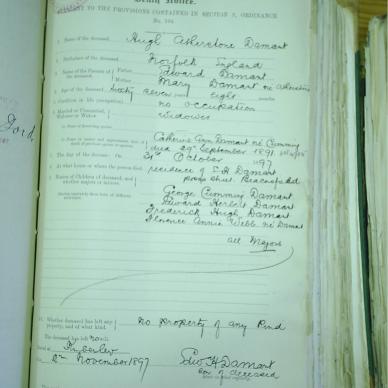 Death Notice.
TO THE PROVISIONS CONTAINED IN SECTION 9, ORDINANCE
No. 104
1. Name of the deceased Hugh Atherstone Damant
2. Birthplace of the deceased Norfolk England
3. Names of the Parents of the deceased Father Edward Damant
Mother Mary Damant né Atherstone
4. Age of the deceased Sixty seven years eight months
5. Condition in life (occupation) no occupation
6. Married or Unmarried, Widower or Widow widower
Catherine Ann Damant né Cumming
died 29th September 1891
7. The day of the decease On 31st October '97
8. At what house or where the person died residence of E H Damant
Beaconsfield
9. Names of Children of deceased, and whether majors or minors
George Cumming Damant
Edward Herbert Damant
Frederick Hugh Damant
Florence Annie Webb né Damant
all Majors
Whether deceased has left any property, and of what kind no property of any kind
The deceased has left no will
Kimberley
2nd November 1897
Edw H Damant
son of deceased
Ford